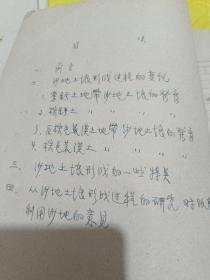 目 次
一、前言
二、沙地土壤形成过程的变化
1.栗钙土地带沙地土壤的发育
2.棕钙土 〃 〃 〃 〃
3.灰棕色荒漠土地带沙地土壤的发育
4.棕色荒漠土 〃 〃 〃
三、沙地土壤形成的一些特点
四、从沙地土壤形成过程的研究
利用沙地的意见